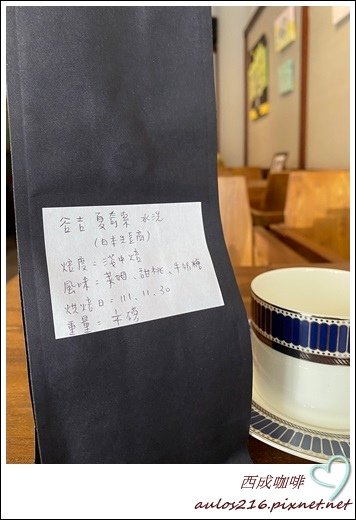 谷吉 夏蕎東 水洗
(日本生豆商)
焙度：淺中焙
風味：萊姆、甜桃、牛奶糖
烘焙日：111.11.30
重量：半磅
西成咖啡
aulos216.pixnet.net